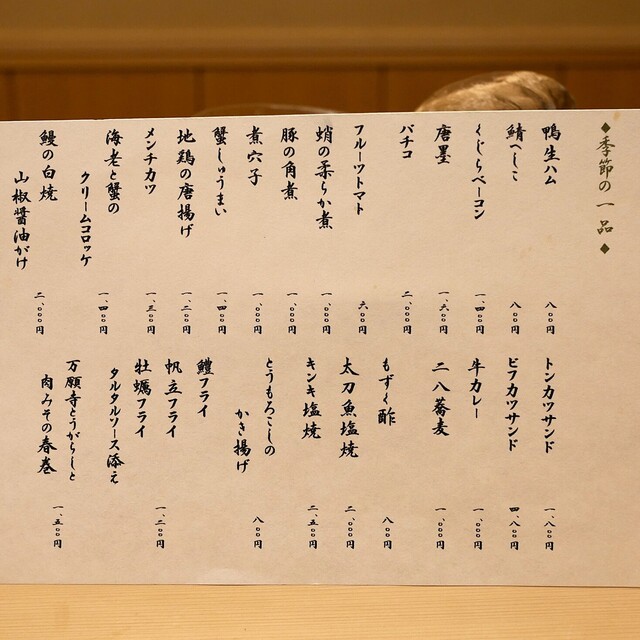 ◆季節の一品◆
鴨生ハム 八〇〇円
鯖へしこ 八〇〇円
くじらベーコン 一、四〇〇円
唐墨 一、六〇〇円
バチコ 二、〇〇〇円
フルーツトマト 六〇〇円
蛸の柔らか煮 一、〇〇〇円
豚の角煮 一、〇〇〇円
煮穴子 一、〇〇〇円
蟹しゅうまい 一、四〇〇円
地鶏の唐揚げ 一、二〇〇円
メンチカツ 一、三〇〇円
海老と蟹の
クリームコロッケ 一、四〇〇円
鰻の白焼
山椒醤油がけ 二、〇〇〇円
トンカツサンド 一、八〇〇円
ビフカツサンド 四、八〇〇円
牛カレー 一、〇〇〇円
二八蕎麦 一、〇〇〇円
もずく酢 八〇〇円
太刀魚塩焼 二、〇〇〇円
キンキ塩焼 二、五〇〇円
とうもろこしの
かき揚げ 八〇〇円
鱧フライ
帆立フライ
牡蠣フライ
タルタルソース添え 一、二〇〇円
万願寺とうがらしと
肉みその春巻 一、五〇〇円